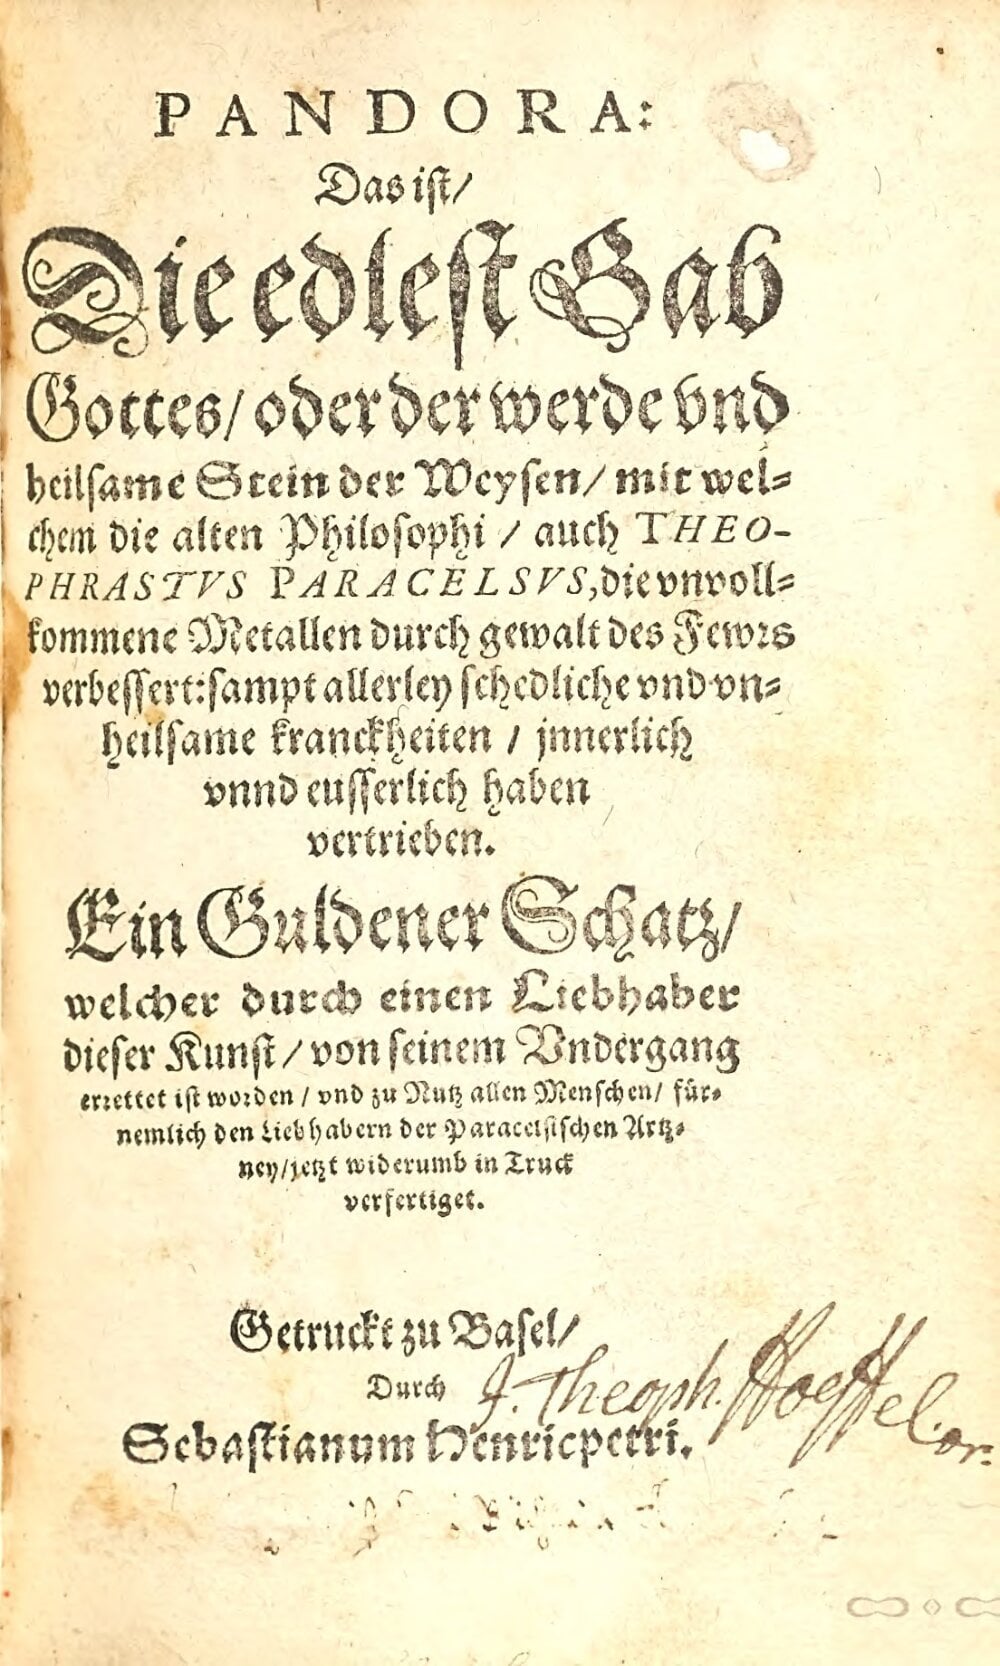 PANDORA:
Das ist/
Die edlest Gab
Gottes/ oder der werde vnd
heilsame Stein der Weysen/ mit wel=
chem die alten Philosophi / auch THEO-
PHRASTVS PARACELSVS, die vnvoll=
kommene Metallen durch gewalt des Fewrs
verbessert: sampt allerley schedliche vnd vn=
heilsame kranckheiten / jnnerlich
vnnd eusserlich haben
vertrieben.
Ein Guldener Schatz/
welcher durch einen Liebhaber
dieser Kunst/ von seinem Vndergang
errettet ist worden / vnd zu Nutz allen Menschen/ für=
nemlich den Liebhabern der Paracelsischen Artz=
ney/ jetzt widerumb in Truck
verfertiget.
Getruckt zu Basel/
Durch
J. Theoph. Hoeffel. Dr.
Sebastianum Henricpetri.